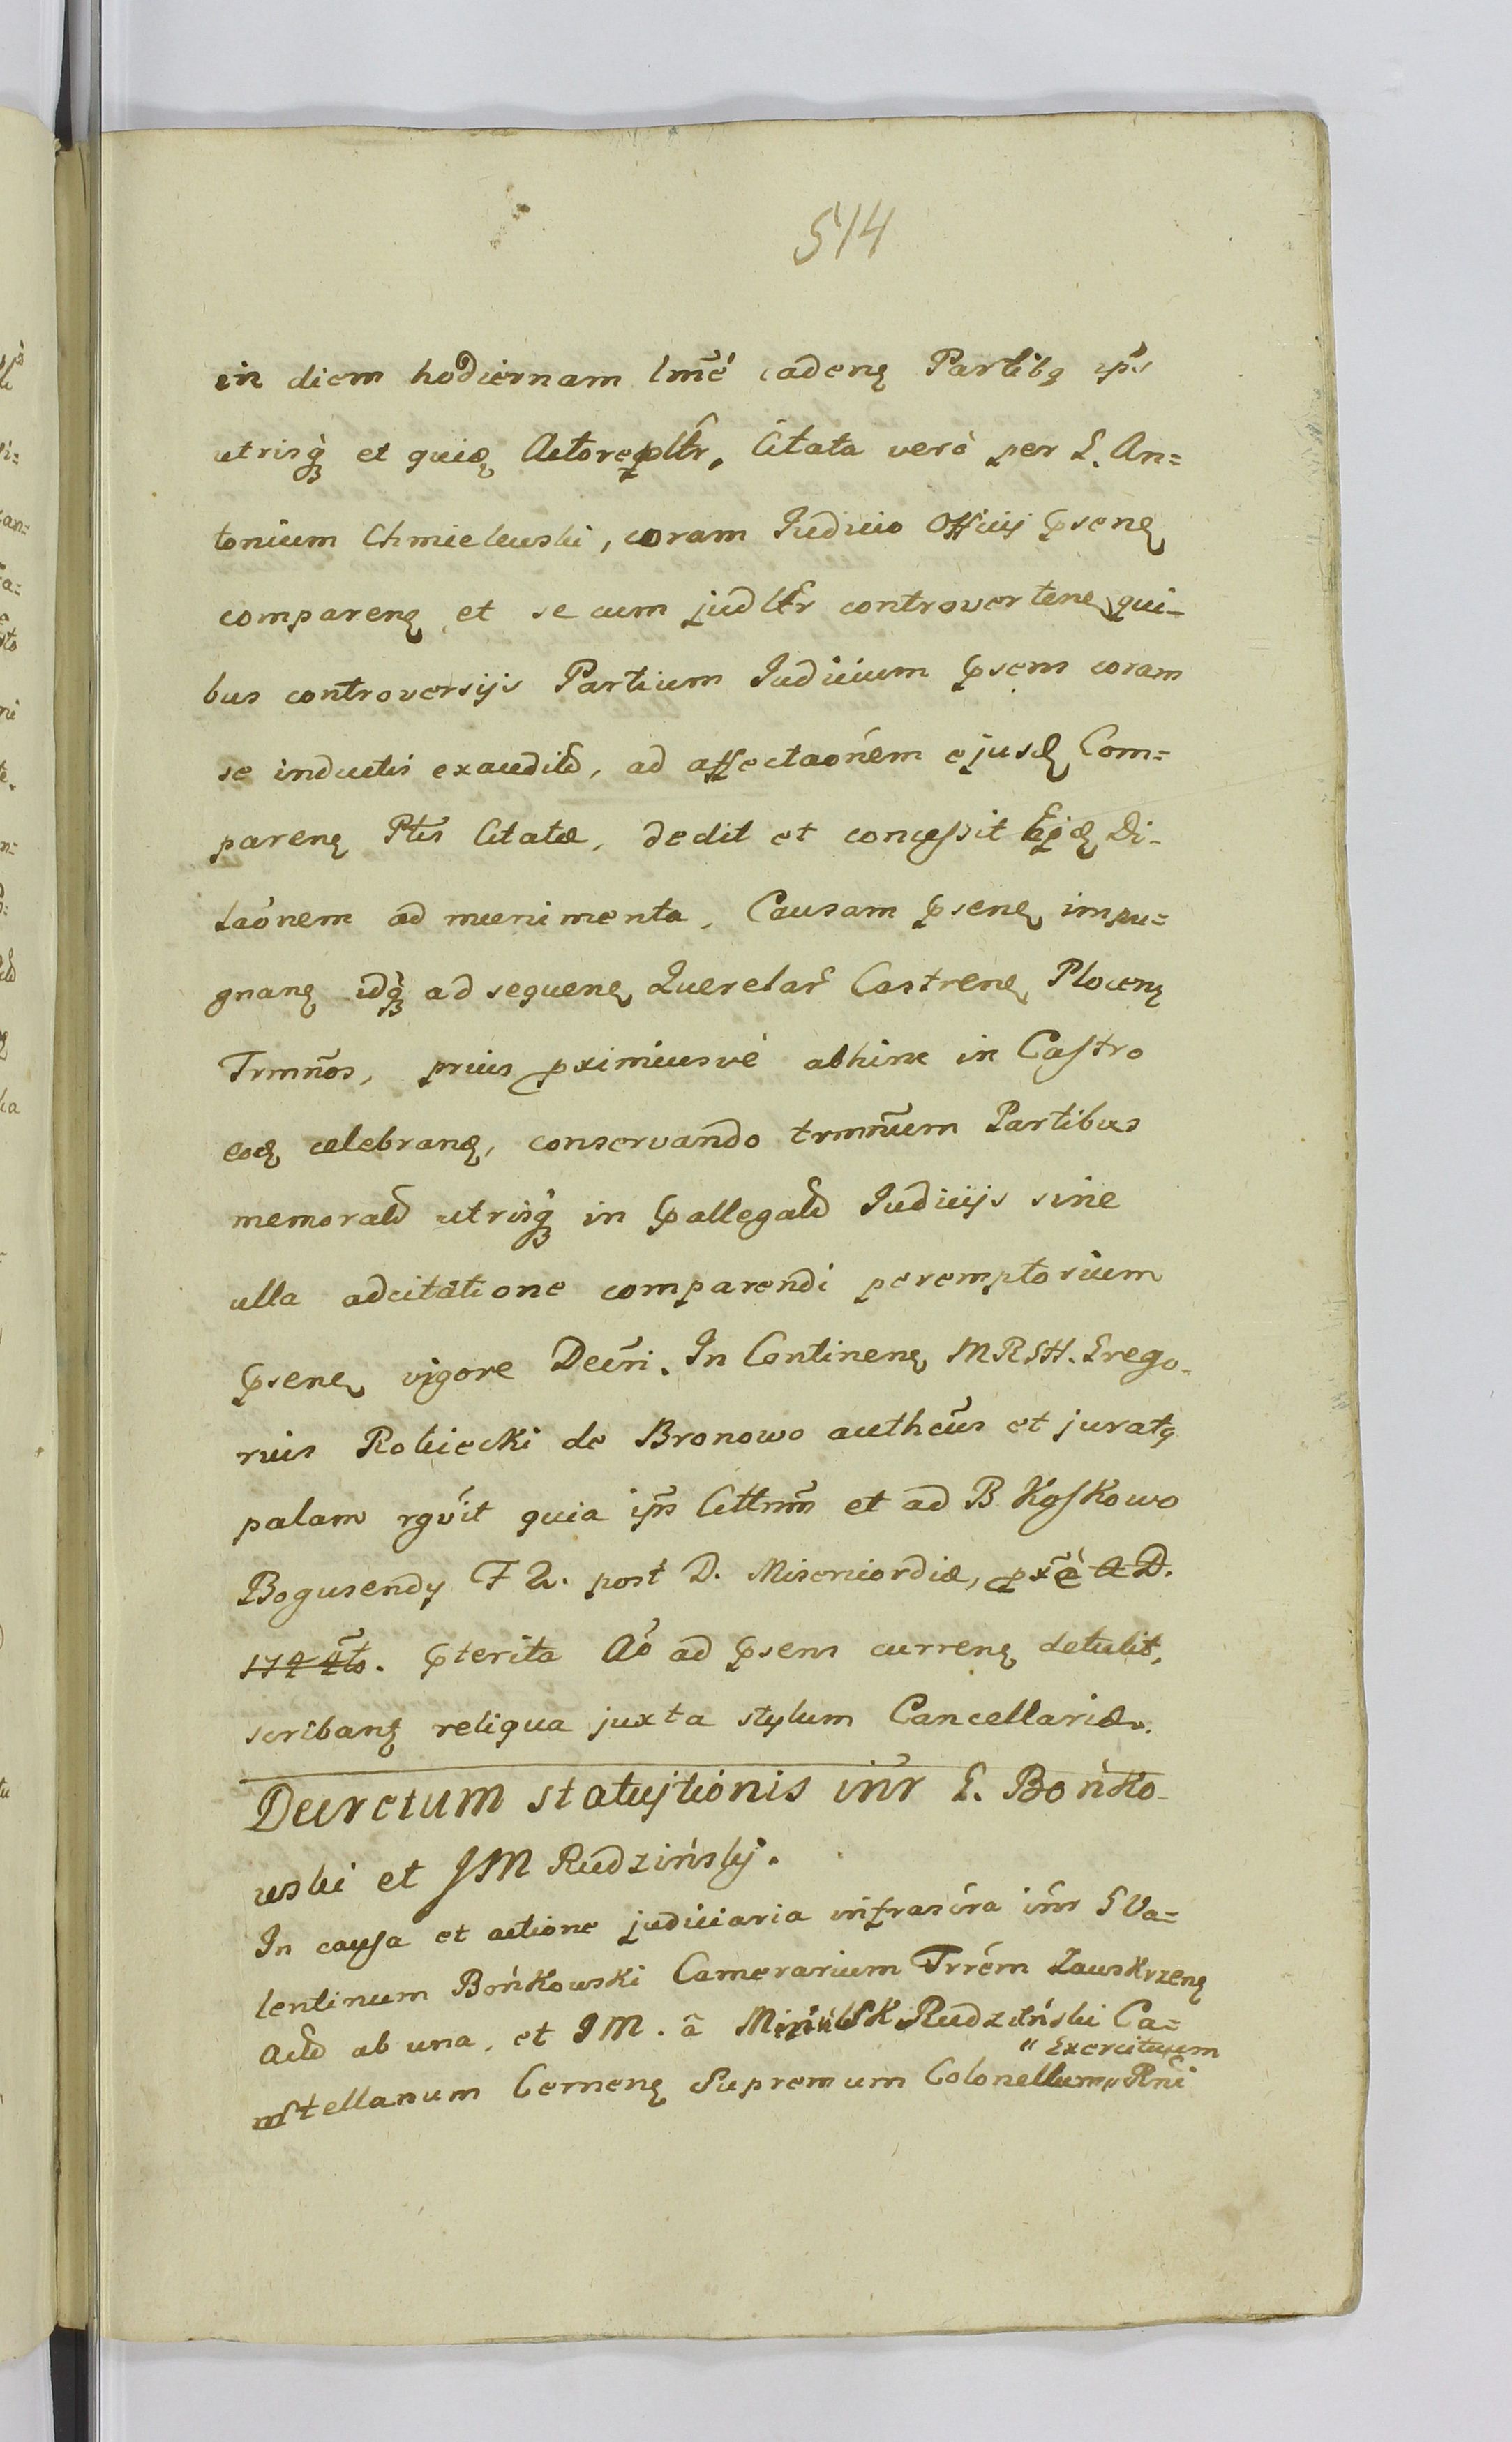 514
in diem hodiernam lm̃e cadenɇ Partibꝫ ip̃s
utrisq̃ et quidɇ Actoreꝫ pltr, Citata verò per G. An=
tonium Chmielewski, coram Iudicio Officij p̃senɇ
comparenɇ et se cum judltr controvertenɇ, qui-
bus controversijs Partium Iudicium p̃sens coram
se inductis exaudit̃, ad affectaõnem ejusdɇ Com=
parenɇ Ptis Citatæ, dedit et concessit Eidɇ Di-
laõnem ad munimenta, Causam p̃senɇ impu=
gnanɇ idq̃ ad sequenɇ Querelar̃ Castrenɇ Plocenɇ
Trmños, prius p̃ximiusvè abhinc in Castro
eodɇ celebranɇ, conservando trmñum Partibus
memorat̃ utrisq̃ in p̃allegat̃ Iudicijs sine
ulla adcitatione comparendi peremptorium
p̃senɇ vigore Decr̃i. In Continenɇ MRSH. Grego-
rius Robiecki de Bronowo autheñs et juratꝫ
palam rgṽit quia ip̃s Cittnm̃ et ad B Koskowo
Bogusendy F 2. post D. Misericordiæ, p̃x̃e A D.
1744to. p̃terita Aõ ad p̃sens currenɇ detulit,
scribanɇ reliqua juxta stylum Cancellariæ.
Decretum statuitionis iñr G. Bońko-
wski et JM Rudzińskj.
In causa et actione judiciaria infrascr̃a iñr G Va=
lentinum Bońkowski Camerarium Trrẽm Zawskrzenɇ
Act̃ ab una, et JM. à Rudziński Ca=
stellanum Cernenɇ Supremum Colonellum Rñi
" Exercituum